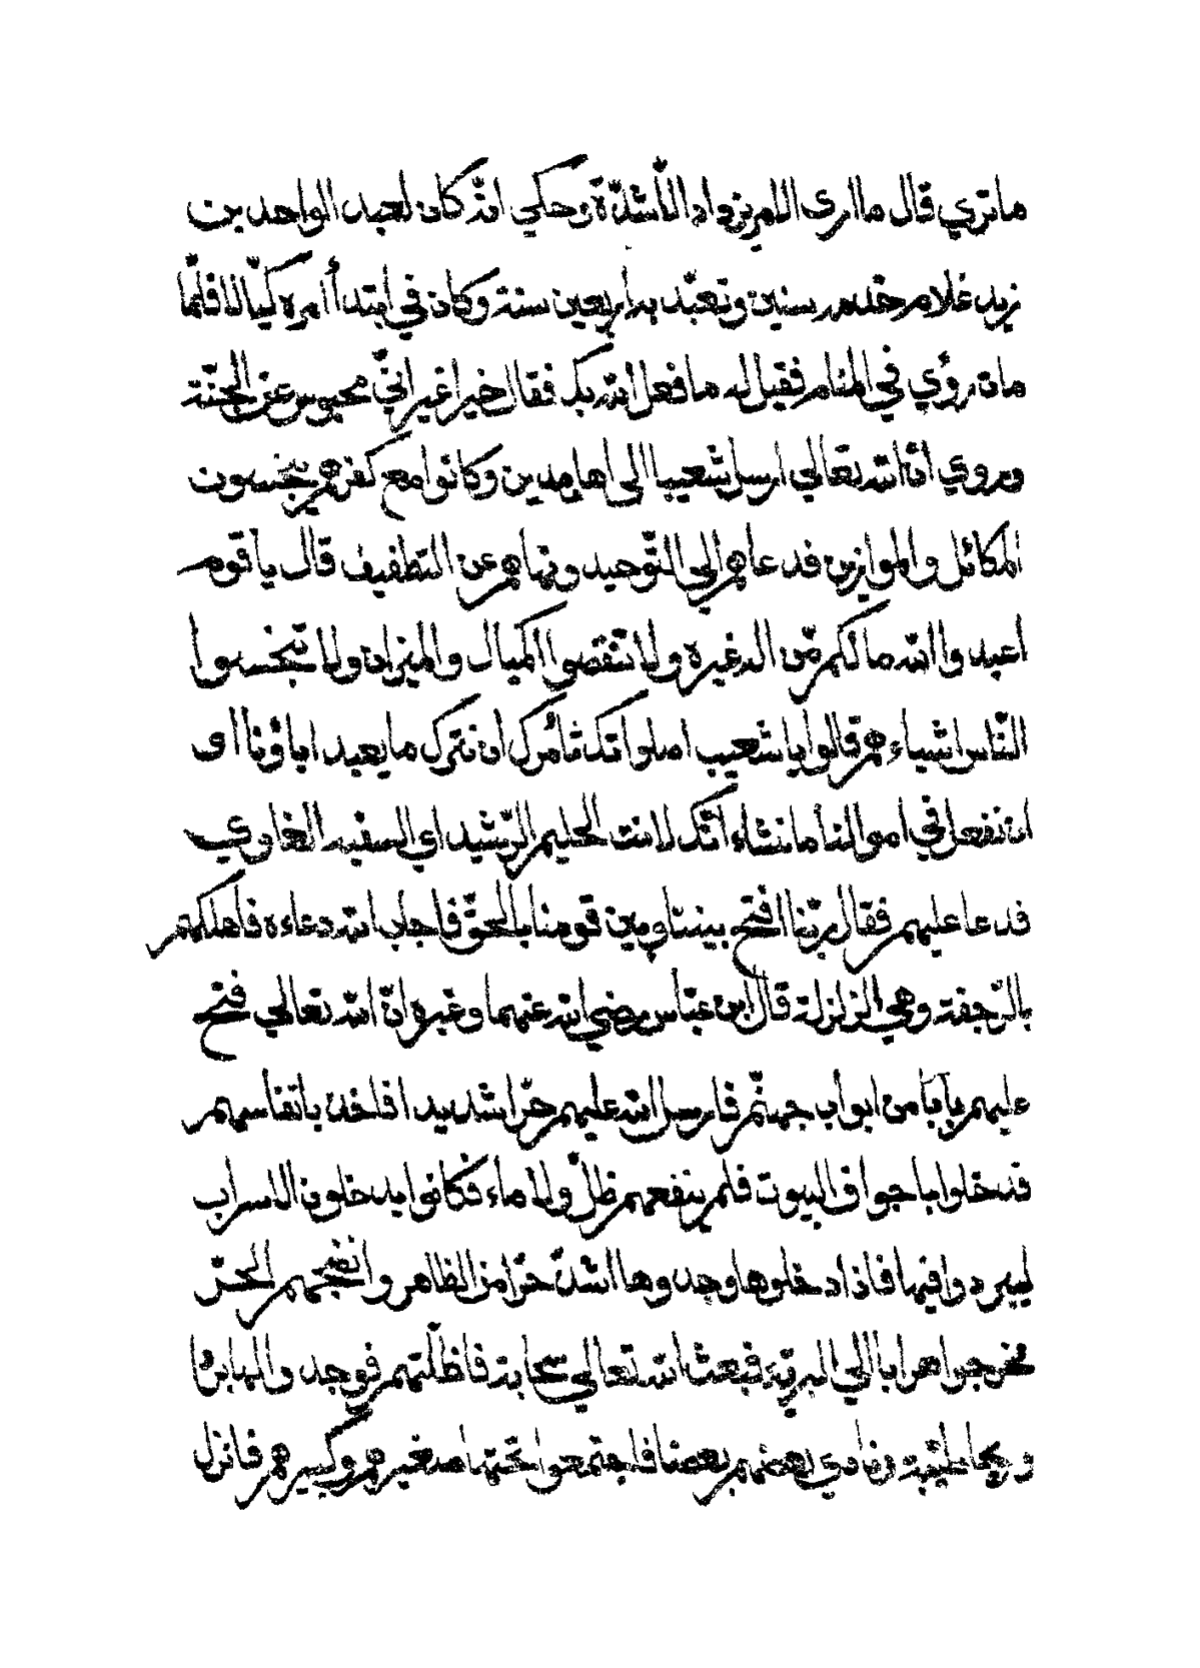 ماتري قال ما ارى الامر يزداد الّا شدّة وحكي انّه كان لعبد الواحد بن
زيد غلام خدمه سنين وتعبّد به اربعين سنة وكان في ابتدأ أمره كيّالا فلمّا
مات رؤي في المنام فقيل له ما فعل الله بك فقال خيرا غير انّي محبوس عن الجنّة
وروي انّ الله تعالي ارسل شعيبا الى اهل مدين وكانوا مع كفرهم يبخسون
المكائل والموازين فدعاهم الي التّوحيد ونهاهم عن التطفيف قال يا قوم
اعبدوا الله ما لكم مّن اله غيره ولا تنقصوا المكيال والميزان ولا تبخسوا
النّاس اشياءهم قالوا يا شعيب اصلواتك تأمرك ان نترك ما يعبد اباؤنا اى
ان نفعل في اموالنا ما نشاء انّك لانت الحليم الرّشيد اي السفيه الغاوي
فدعا عليهم فقال ربّنا افتح بيننا وبين قومنا بالحقّ فاجاب الله دعاءه فاهلكهم
بالرّجفة وهي الزلزلة قال ابن عبّاس رضي الله عنهما وغيره انّ الله تعالي فتح
عليهم بابا من ابواب جهنّم فارسل الله عليهم حرّا شديدا فاخذ بانفاسهم
فدخلوا باجواف البيوت فلم ينفعهم ظلّ ولا ماء فكانوا يدخلون الاسراب
ليبردوا فيها فاذا دخلوها وجدوها اشدّ حرّا من الظاهر وانضجهم الحرّ
فخرجوا هرابا الي البريّة فبعث الله تعالي سحابة فاظلّتهم فوجدوا لها بردا
وريحا طيّبة ونادي بعضهم بعضا فاجتمعوا تحتها صغيرهم وكبيرهم فانزل